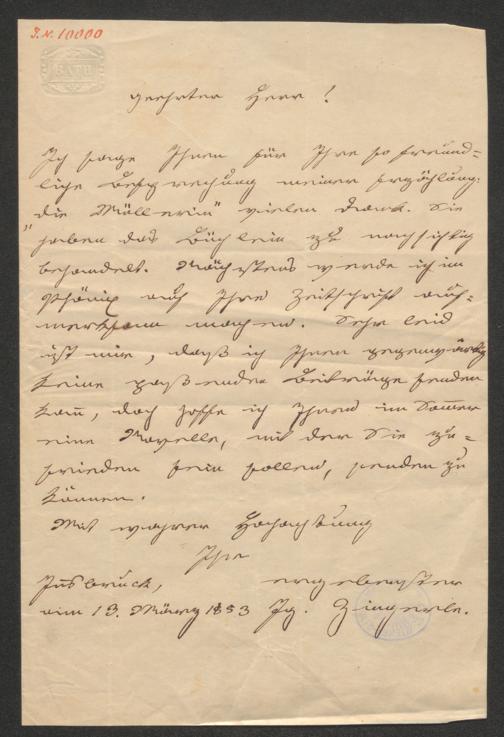 J.N. 10000
BATH
Geehrter Herr!
Ich sage Ihnen für Ihre so freund=
liche Besprechung meiner Erzählung:
„die Müllerin“ vielen Dank. Sie
haben das Büchlein zu nachsichtig
behandelt. Nächstens werde ich im
Phönix auf Ihre Zeitschrift auf=
merksam machen. Sehr leid
ist mir, daß ich Ihnen gegenwärtig
keine passenden Beiträge senden
kann, doch hoffe ich Ihnen im Sommer
eine Novelle, mit der Sie zu=
frieden sein sollen, senden zu
können.
Mit wahrer Hochachtung
Ihr
Insbruck, ergebenster
am 13. März 1853 Ig. Zingerle.